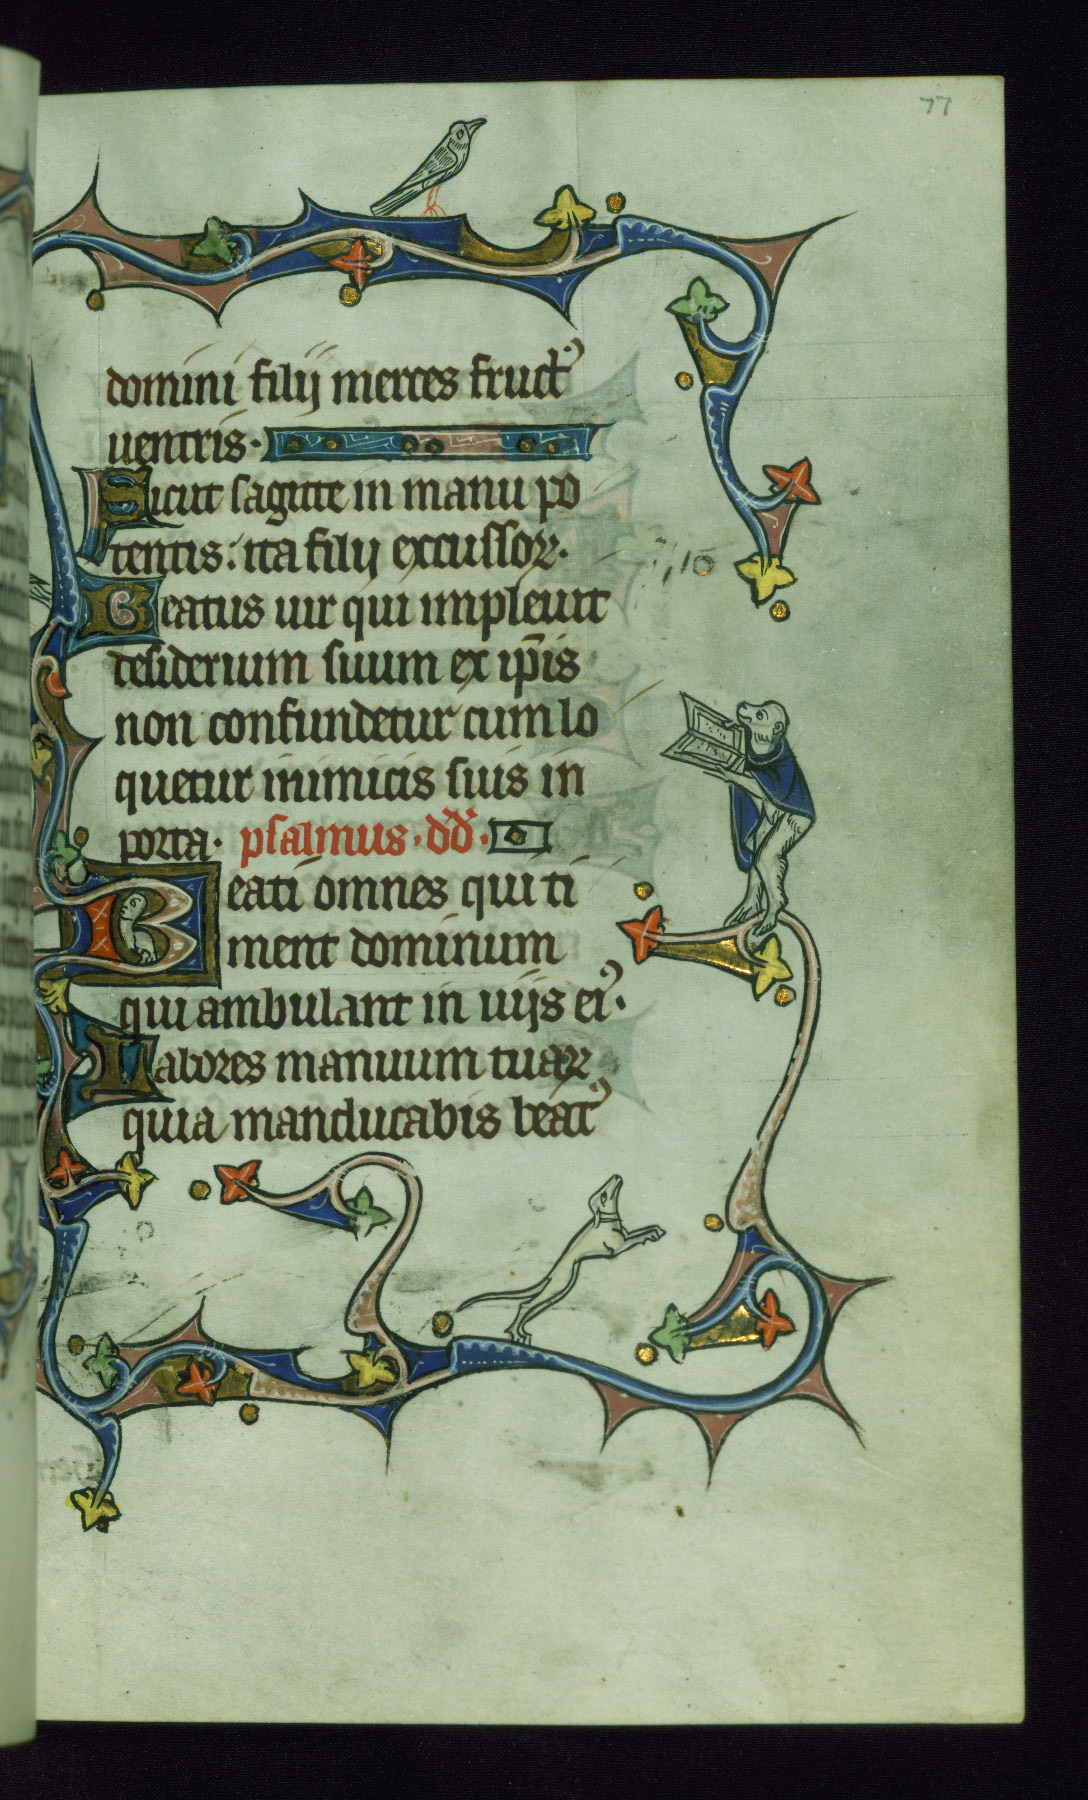 77
domini filij merces fruct᾿
uentris·
Sicut sagitte in manu po
tentis: ita filij excussoꝝ·
Beatus uir qui impleuit
desiderium suum ex ip̄is
non confundetur cum lo
quetur inimicis suis in
porta· psalmus· dd̄·
Beati omnes qui ti
ment dominum
qui ambulant in uijs ei᾿·
Labores manuum tuaꝝ
quia manducabis beat᾿